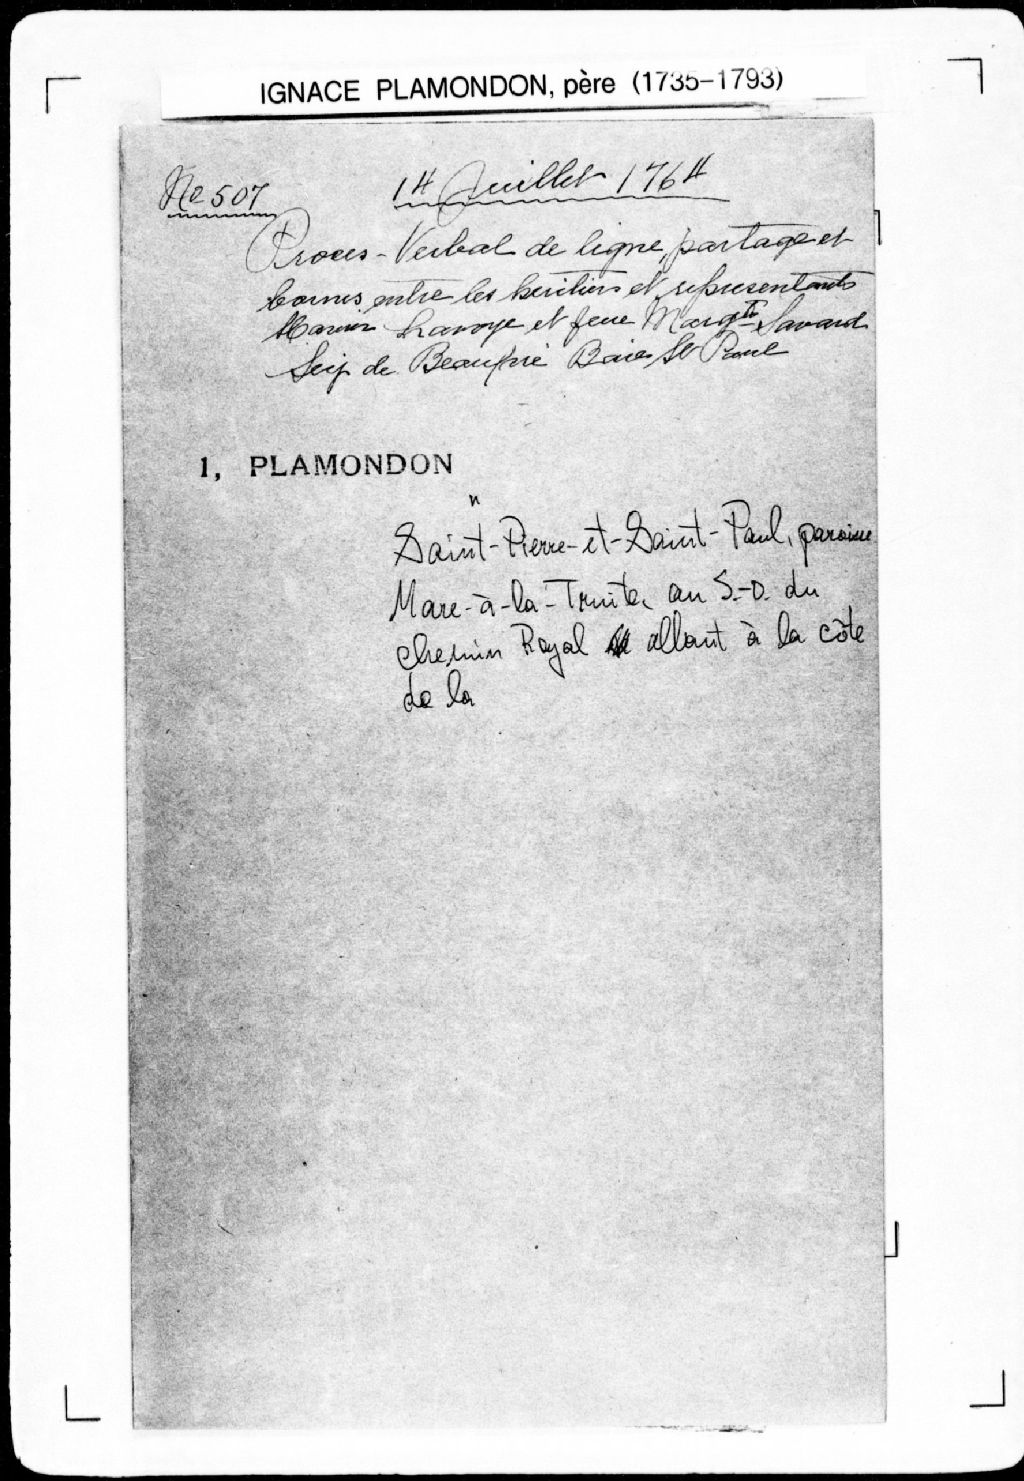 IGNACE PLAMONDON, père (1735-1793)
No 507
14 Juillet 1764
Proces-Verbal de ligne, partage et
bornes entre les heritiers et representants
Lavoye et feue Margte Savard
Seig de Beaupré Baie St Paul
1, PLAMONDON
"
Saint-Pierre-et-Saint-Paul, paroisse
Mare-à-la-Truite, au S.-O. du
chemin Royal allant à la côte
de la